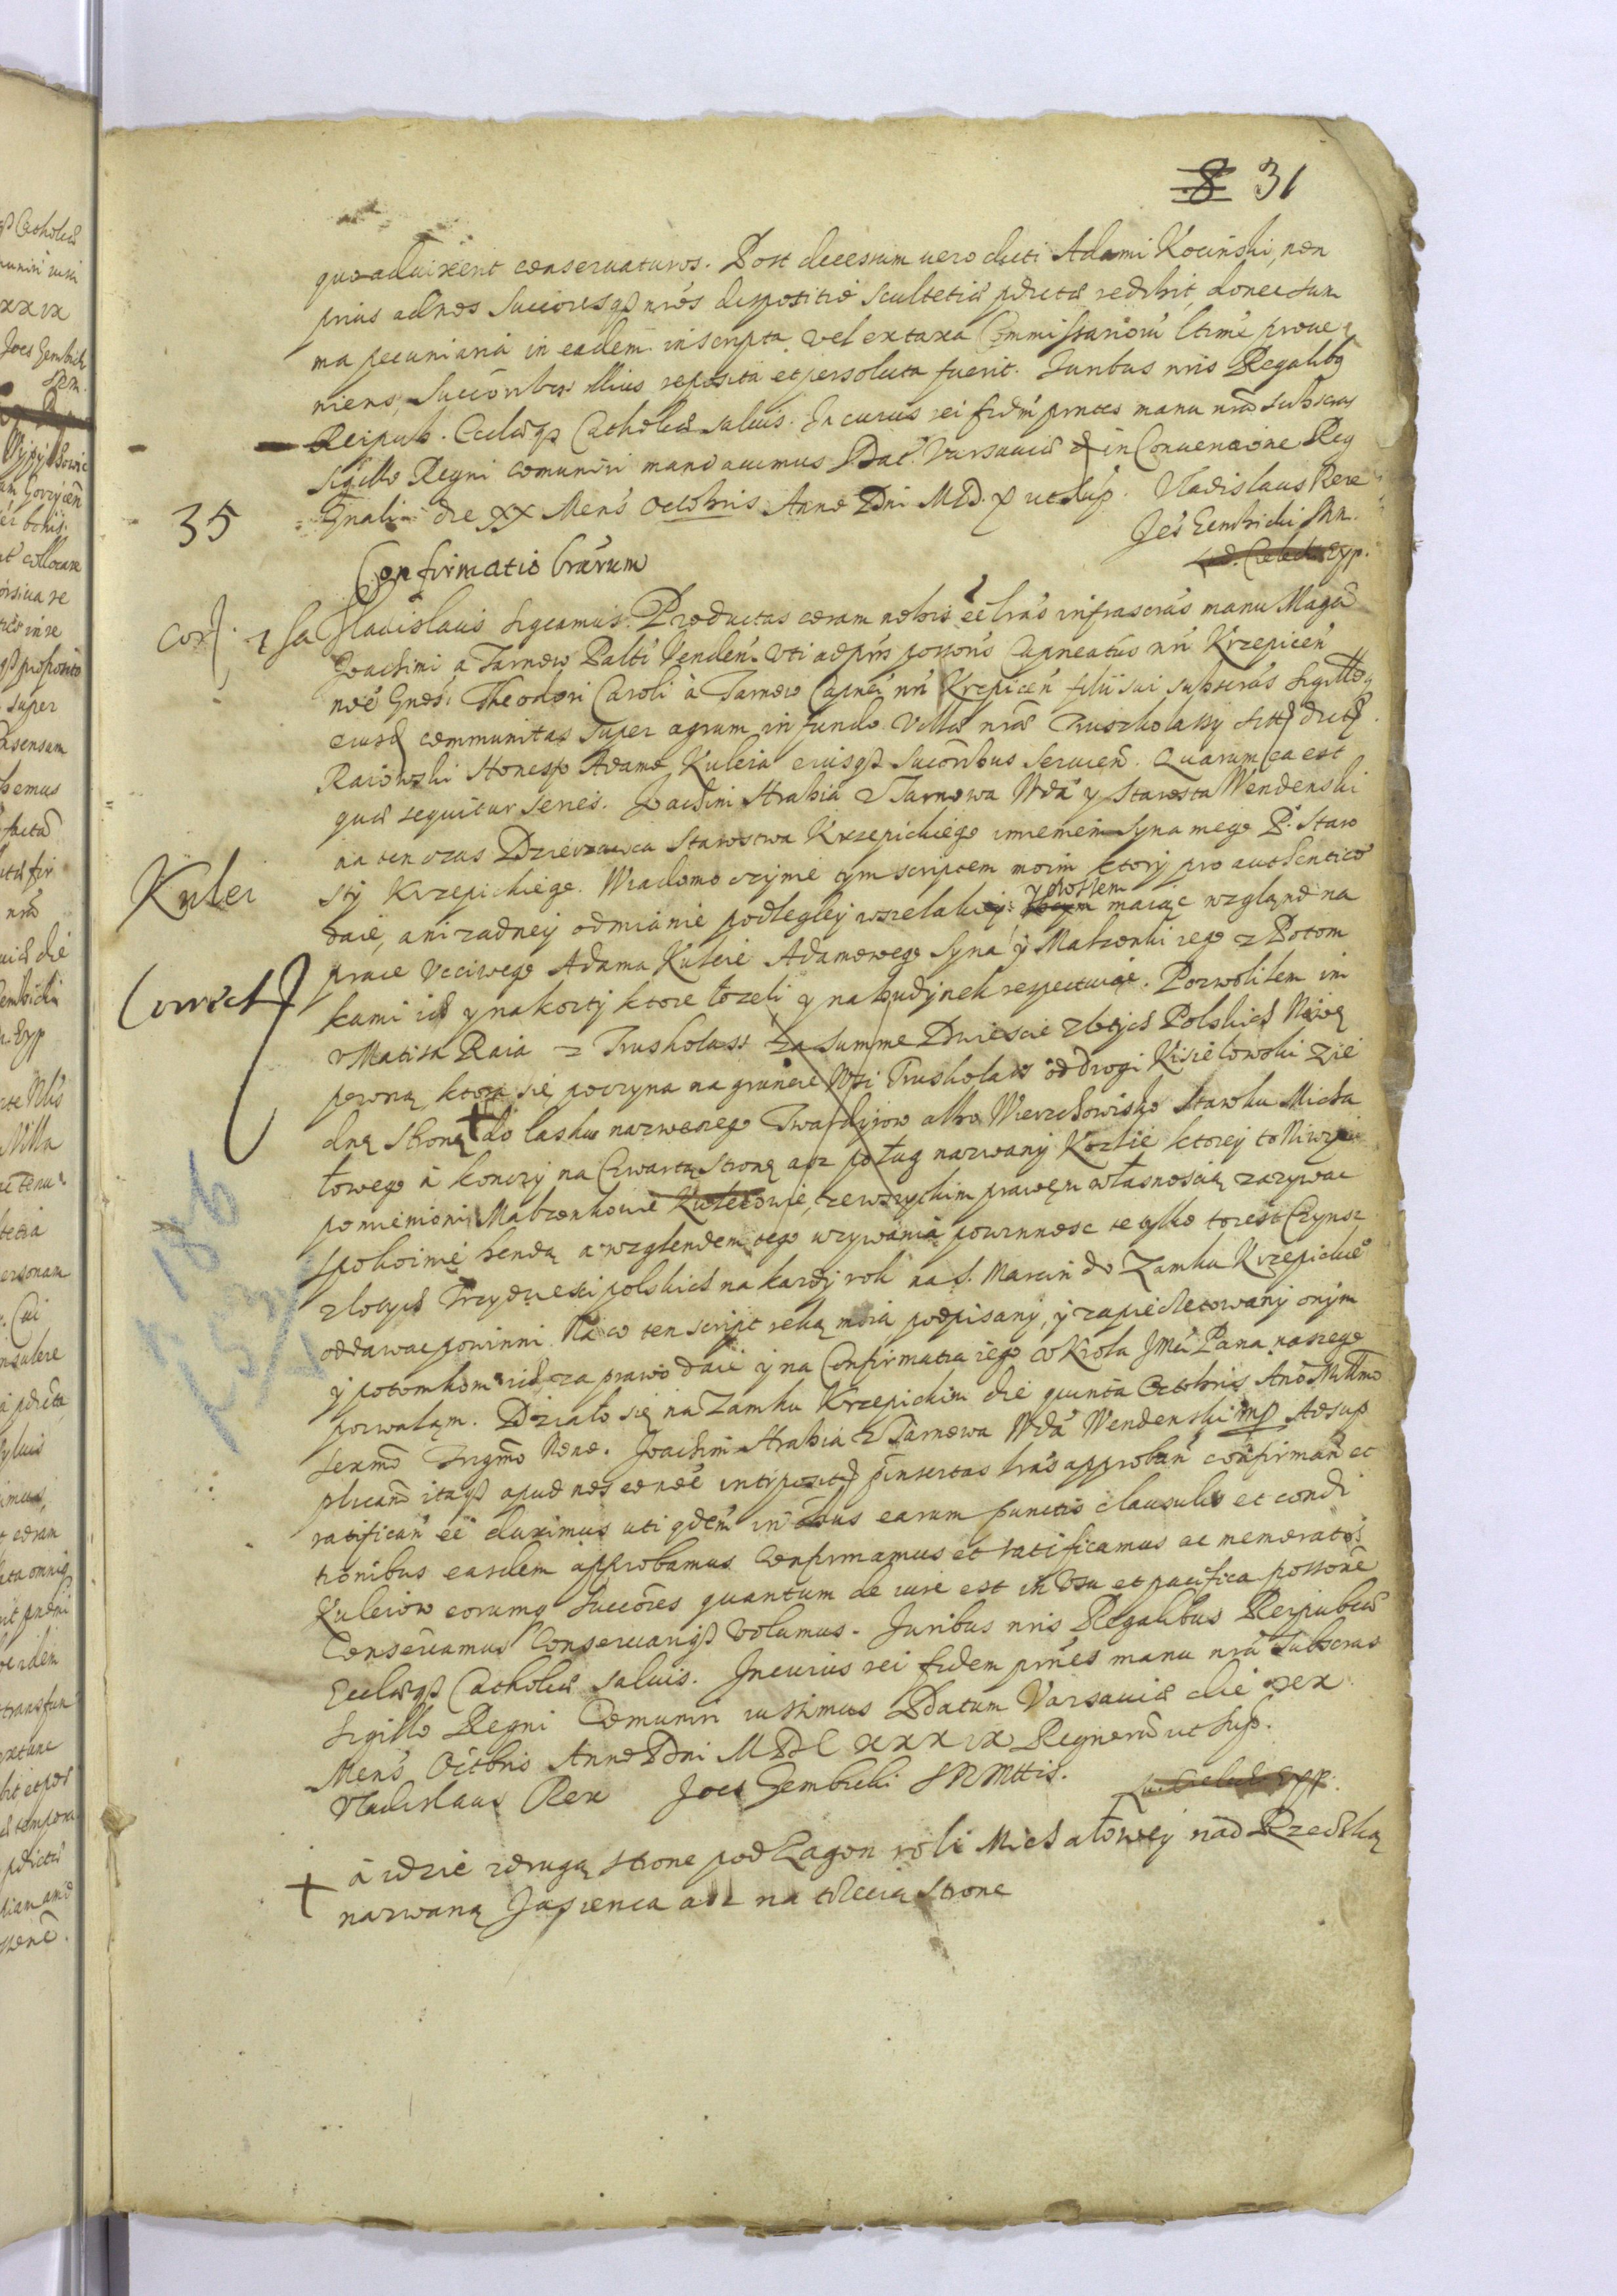 8 31
quoaduixerit conseruaturos. Post decessum uero dicti Adami Kocinski, non
prius ad nos Succoresqз nros dispositio Scultetiæ pdictæ redibit, donec sum
ma pecuniaria in eadem inscripta vel ex taxa Commissarioru ltime proue
niens, Succoribus illius reposita et persoluta fuerit. Juribus nris Regalibq
Reipub. Ecclæqз Catholicæ saluis. In cuius rei fidem pntes manu nra subscras
sigillo Regni comuniri mandauimus Dat. Varsauiæ in Conuencione Reg
Gnali die XX Mens Octobris Anno Dni MD. X ut sup. Vladislaus Rex
Jos Gembicki
35
Confirmatio lrarum
Vladislaus Sigcamus. Productas coram nobis ee lras infrascras manu Magci
Joachimi a Tarnow Palti Venden. Uti ad pns possoris Capneatus nri Krzepicen
noe Gnosi Theodori Caroli à Tarnow Capnei nri Krzepicen filii sui subscras sigilloq
eiusd communitas super agrum in fundo Villæ nræ Truskolassy sitt dict
Raiowski Honesto Adamo Kuleia eiusqз Succoribus seruien. Quarum ea est
quæ sequitur series. Joachim Hrabia z Tarnowa Wda y Starosta Wendenski
na ten czas Dzierzawca Starostwa Krzepickiego imieniem Syna mego P. Staro
sty Krzepickiego. Wiadomo czynie tym scriptem moim ktory pro authentico
Kulei
daie, ani zadney odmianie podległey wszelakiey: maiąc wzgląnd na
prace Vcciwego Adama Kuleie Adamowego Syna y Małzonki iego z Potom
kami ich y na koszty ktore łozeli y na budynek respectuiąc. Pozwoliłem im
Correct
v Matisa Raia z Truskolass za Summe Dwiescie złotych Polskich Niwę
pewną, ktora się poczyna na gruncie Wsi Truskolass od drogi Kisielowski Zie
dnę stronę + do lasku nazwanego Twardyiow albo Wierzchowisko Stawku Micha
łowego á konczy na Czwartą stronę asz po Ług nazwany Kozlie ktorey to Niwy
pomienioni Małzonkowie Kuleiowie, ze wszytkim prawem własnoscią zazywac
spokoinie bendą a wzglendem tego vzywania powinnosc te tylko to iest Czynsz
złotych Trzydziesci polskich na kazdy rok na S. Marcin do Zamku Krzepickieo
oddawac powinni. Na co ten script ręką moią podpisany, y zapieczetowany onym
y potomkom ich za prawo daie y na Confirmatią iego v Krola Jmci Pana naszego
pozwalam. Działo się na Zamku Krzepickim die quinta Octobris Ano Millmo
sexmo Trigmo Nono. Joachim Hrabia z Tarnowa Wda Wendenski mp Ad sup
plicano itaqз apud nos eo noe intrposit pinsertas lras approban confirman et
ratifican ee duximus uti qdem in oibus earum punctis clausulis et condi
tionibus easdem approbamus Confirmamus et ratificamus ac memoratos
Kuleiow eorumq Succores quantum de iure est in Vsu et pacifica possone
Conseruamus Conseruariqз Volumus. Juribus nris Regalibus Reipubcæ
Ecclæqз Catholicæ saluis. In cuius rei fidem pntes manu nra subscras
Sigillo Regni Comuniri iussimus Datum Varsauiæ die xex
Mens Octobris Anno Dni MDC XXXIX Regnoru ut sup.
Vladislaus Rex Joes Gembicki SRMttis.
+ á idzie zdrugą strone pod Zagon roli Michałowey nad Rzeczką
nazwaną Jasienca asz na trzecią strone